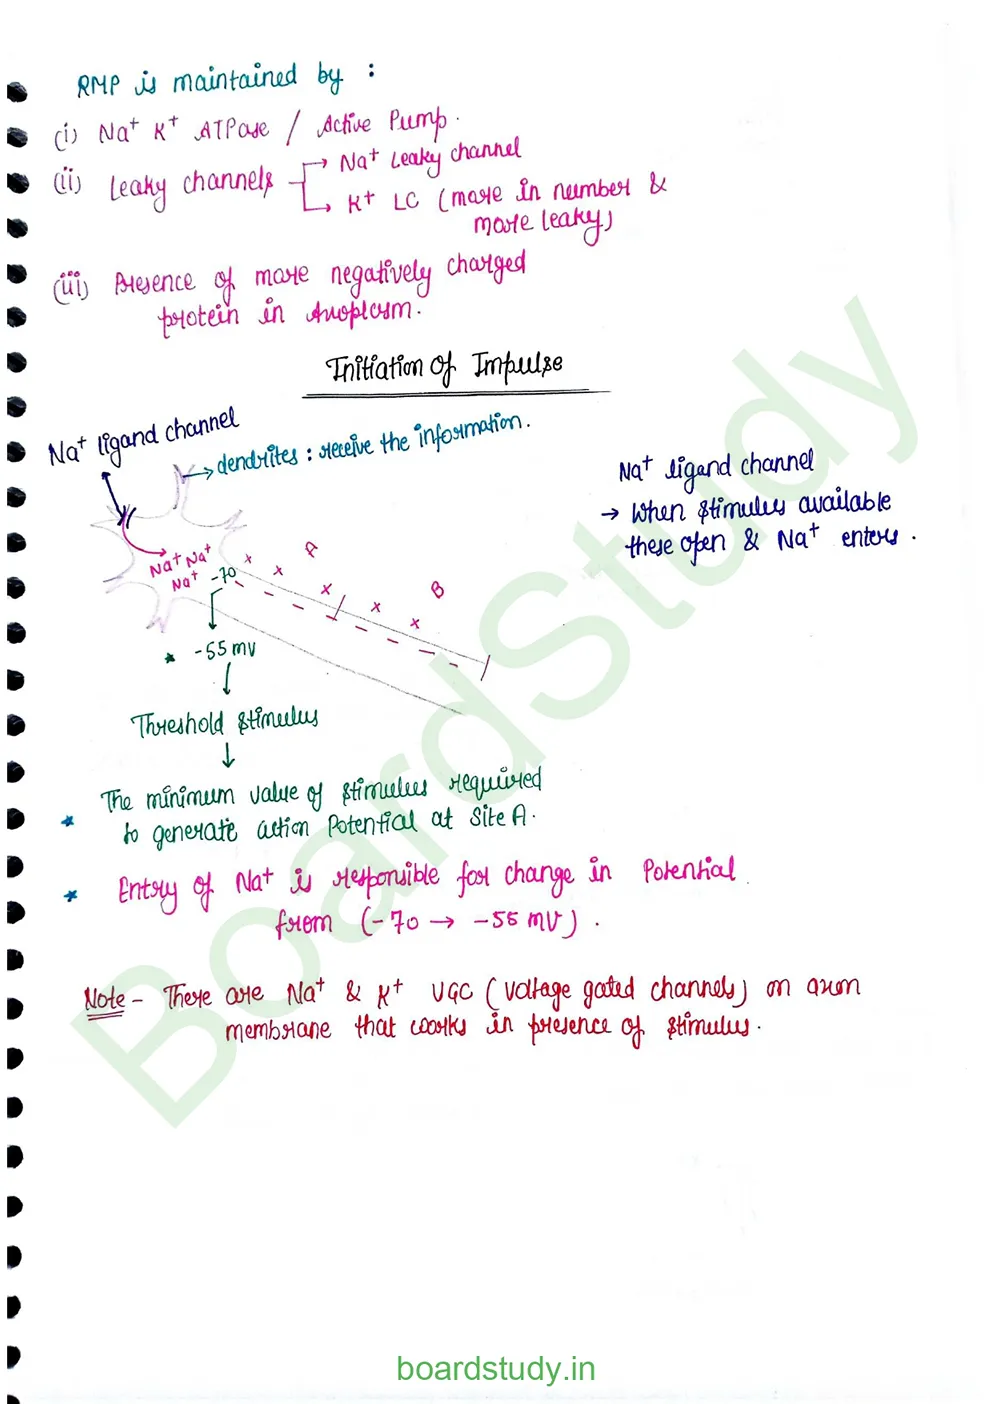 RMP is maintained by :
(i) Na⁺ K⁺ ATPase / Active Pump.
(ii) Leaky channels → Na⁺ Leaky channel
→ K⁺ LC (more in number &
more leaky)
(iii) Presence of more negatively charged
protein in Axoplasm.
Initiation of Impulse
Na⁺ ligand channel
→ dendrites : receive the information.
Na⁺ ligand channel
→ When stimulus available
these open & Na⁺ enters .
Na⁺ Na⁺
Na⁺ -70
x x x x x
A
B
* -55 mv
↓
Threshold stimulus
↓
* The minimum value of stimulus required
to generate action Potential at site A.
* Entry of Na⁺ is responsible for change in Potential
from (-70 → -55 mV) .
Note - There are Na⁺ & K⁺ VGC (voltage gated channels) on axon
membrane that works in presence of stimulus.
BoardStudy
boardstudy.in